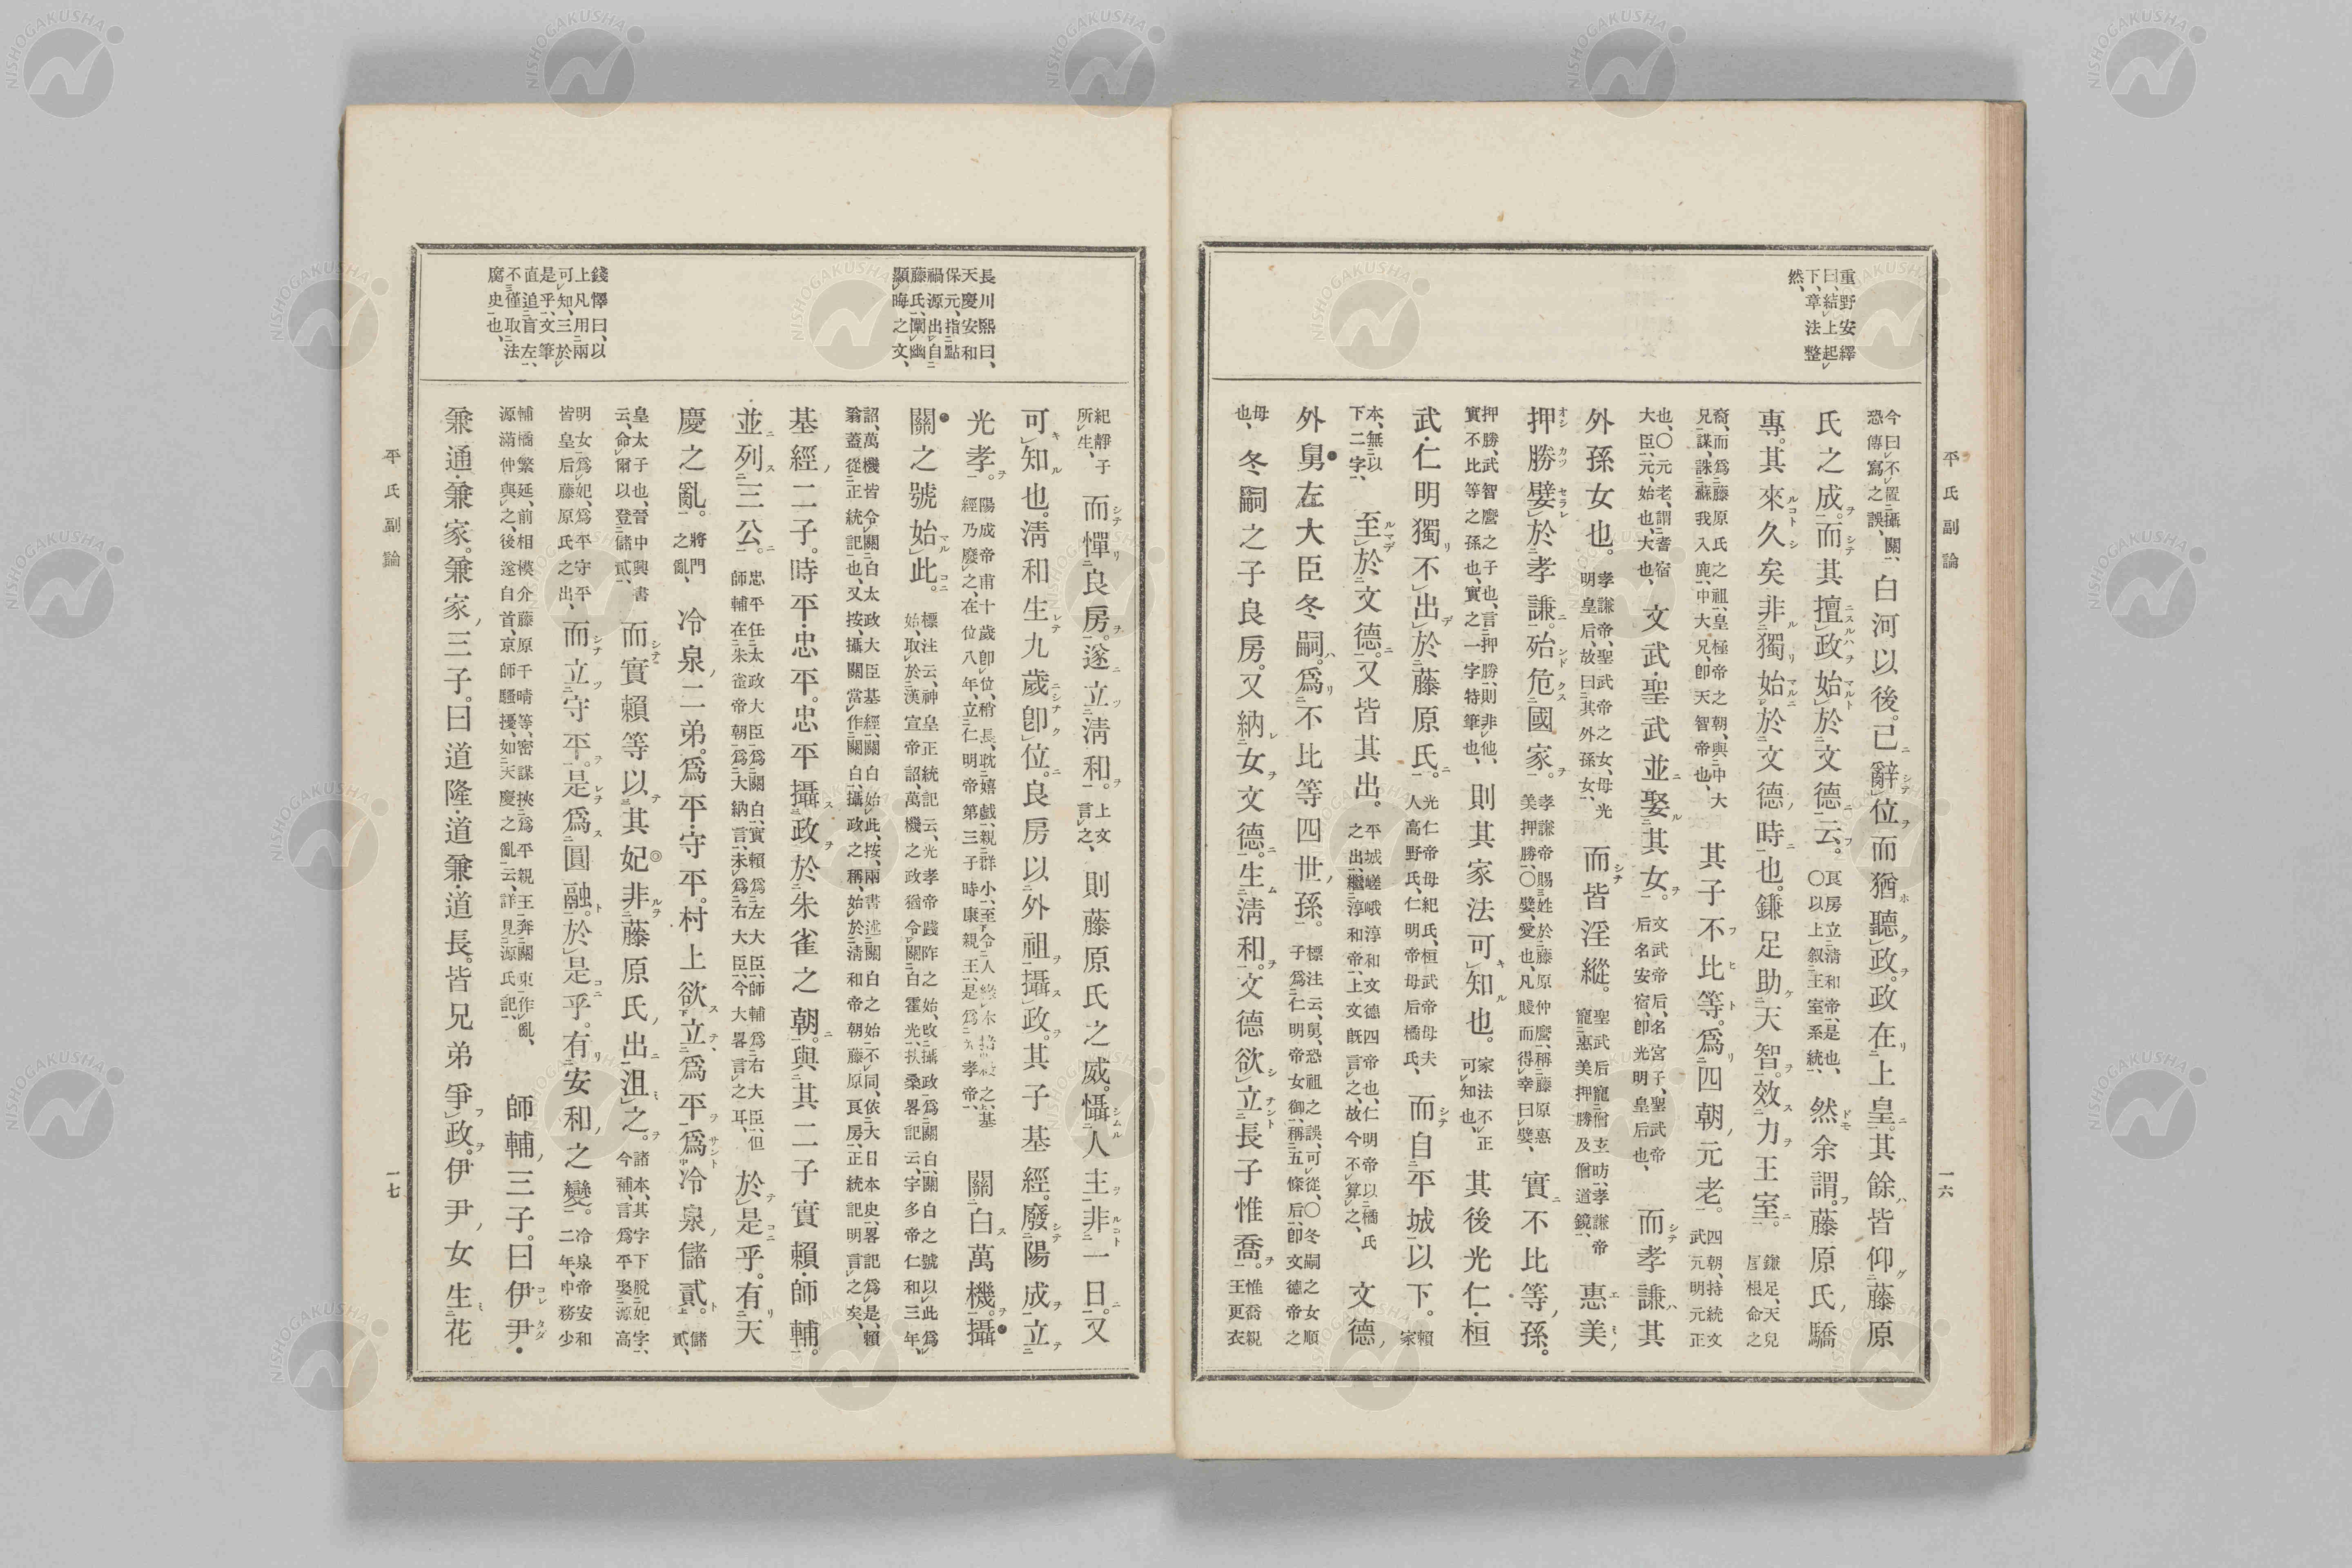 平氏副論
一六
重野安繹
曰、結上起
下、章法整
然、
今曰不置攝關、恐傳寫之誤、白河以後。已辭位而猶聽政。政在上皇。其餘皆仰藤原
氏之成。而其擅政始於文德云。良房立淸和帝、是也、〇以上叙王室系統、然余謂。藤原氏驕
專。其來久矣。非獨始於文德時也。鎌足助天智。效力王室。鎌足、天兒屋根命之
裔、而爲藤原氏之祖、皇極帝之朝、與中大兄謀、誅蘇我入鹿、中大兄、卽天智帝也、其子不比等。爲四朝元老。四朝、持統文武元明元正
也、〇元老、謂耆宿大臣、元、始也大也、文武・聖武並娶其女。文武帝后、名宮子、聖武帝后名安宿、卽光明皇后也、而孝謙其
外孫女也。孝謙帝、聖武帝之女、母光明皇后、故曰其外孫女、而皆淫縱。聖武后寵僧玄昉、孝謙帝寵惠美押勝及僧道鏡、惠美
押勝嬖於孝謙。殆危國家。孝謙帝賜姓於藤原仲麿、稱藤原惠美押勝、〇嬖、愛也、凡賤而得幸曰嬖、實不比等孫。
押勝、武智麿之子也、言押勝、則非他、實不比等之孫也、實之一字特筆也、則其家法可知也。家法不正可知也、其後光仁・桓
武・仁明獨不出於藤原氏。光仁帝母紀氏、桓武帝母夫人高野氏、仁明帝母后橘氏、而自平城以下。賴家
本、無以下二字、至於文德。又皆其出。平城嵯峨淳和文德四帝也、仁明帝以橘氏之出、繼淳和帝、上文旣言之、故今不算之、文德
外舅左大臣冬嗣。爲不比等四世孫。標注云、舅、恐祖之誤、可從、〇冬嗣之女順子爲仁明帝女御、稱五條后、卽文德帝之
母也、冬嗣之子良房。又納女文德。生淸和。文德欲立長子惟喬。惟喬親王更衣
長川熙曰、
天慶安和
保元、指點
禍源出自
藤氏、闡幽
顯晦之文、
錢懌曰、以
上凡用兩
可知、三於
是乎、文筆
直追盲左、
不僅取法
腐史也、
紀靜子所生、而憚良房。遂立淸和。上文言之、則藤原氏之威。懾人主。非一日。又
可知也。淸和生九歲卽位。良房以外祖攝政。其子基經。廢陽成立
光孝。陽成帝甫十歲卽位、稍長、耽嬉戲、親群小、至令人之、基經乃廢之、在位八年、立仁明帝第三子時康親王、是爲光孝帝、關白萬機。攝
關之號始此。標注云、神皇正統記云、光孝帝踐阼之始、攻攝政爲關白、關白之號以此爲始、取於漢宣帝詔、萬機之政猶令關白霍光、扶桑畧記云、宇多帝仁和三年、
詔、萬機皆令關白太政大臣基經、關白始此、按、兩書述關白之始、不同、依大日本史、畧記爲是、賴翁蓋從正統記也、又按、攝關當作關白、攝政之稱、始於淸和帝朝藤原良房、正統記明言之矣、
基經二子。時平・忠平。忠平攝政於朱雀之朝。與其二子實賴・師輔。
並列三公。忠平任太政大臣、爲關白、實賴爲左大臣、師輔爲右大臣、但師輔在朱雀帝朝、爲大納言、未爲右大臣、今大畧言之耳、於是乎。有天
慶之亂。將門之亂、冷泉二弟。爲平・守平。村上欲立爲平爲冷泉儲貳。儲貳、
皇太子也、晉中興書云、命爾以登儲貳、而實賴等以其妃非藤原氏出沮之。諸本、其字下脫妃字、今補、言爲平娶源高
明女爲妃、爲平守平皆皇后藤原氏之出、而立守平。是爲圓融。於是乎。有安和之變。冷泉帝安和二年、中務少
輔橘繁延、前相模介藤原千晴等、密謀挾爲平親王、奔關東作亂、源滿仲與之、後遂自首、京師騷擾、如天慶之亂云、詳見源氏記、師輔三子。曰伊尹・
兼通・兼家。兼家三子。曰道隆・道兼・道長。皆兄弟爭政。伊尹女生花
平氏副論
一七